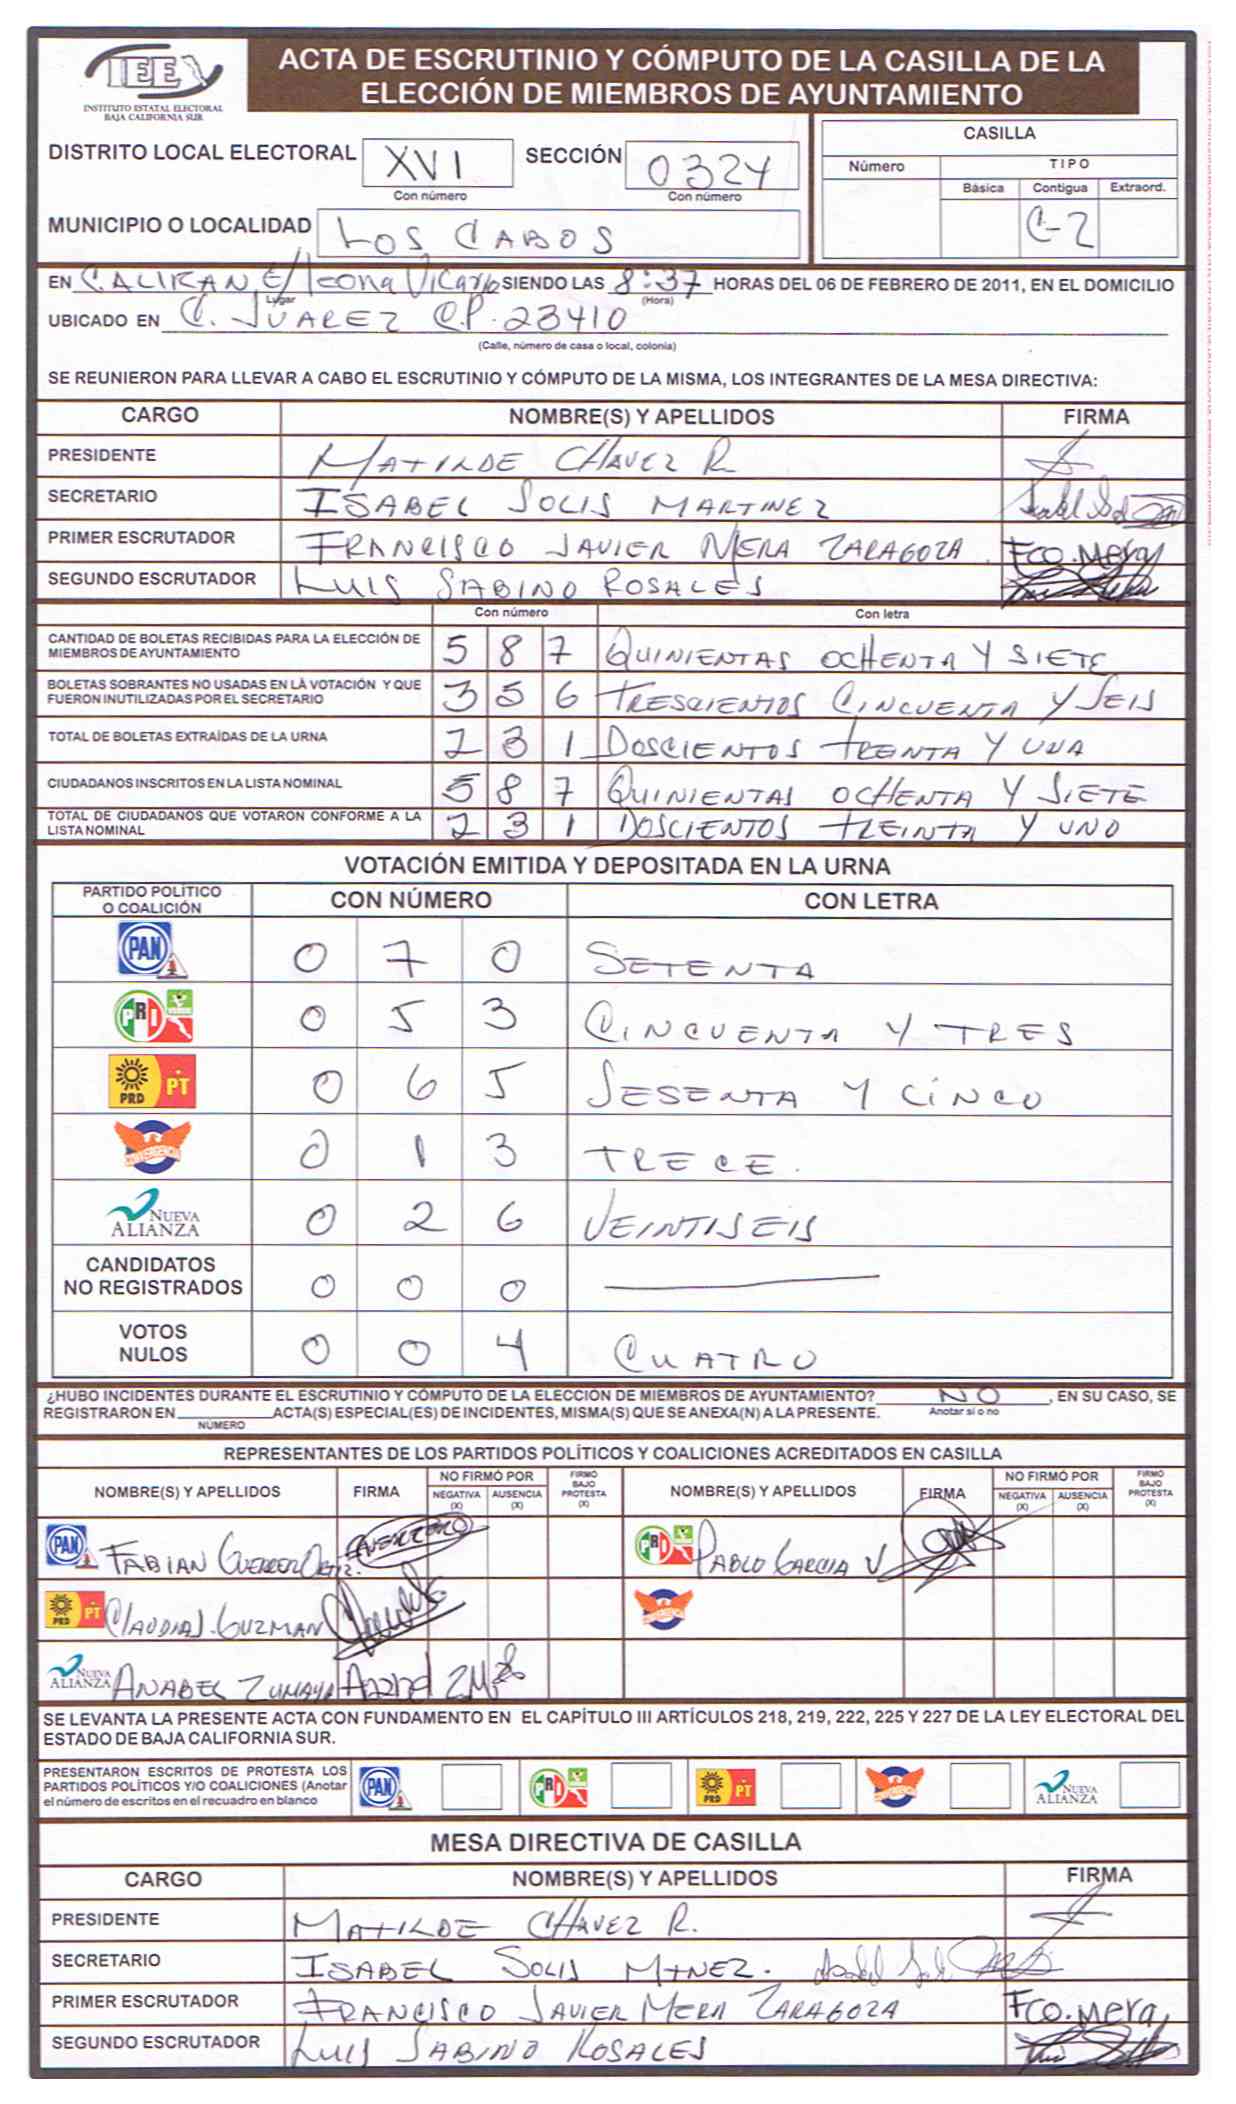 IEE
INSTITUTO ESTATAL ELECTORAL
BAJA CALIFORNIA SUR
ACTA DE ESCRUTINIO Y CÓMPUTO DE LA CASILLA DE LA
ELECCIÓN DE MIEMBROS DE AYUNTAMIENTO
DISTRITO LOCAL ELECTORAL XVI SECCIÓN 0324
Con número Con número
MUNICIPIO O LOCALIDAD LOS CABOS
CASILLA
Número TIPO
Básica Contigua Extraord.
C-2
EN CALIKAN E/ Leona Vicario SIENDO LAS 8:37 HORAS DEL 06 DE FEBRERO DE 2011, EN EL DOMICILIO
Lugar (Hora)
UBICADO EN C. JUAREZ C.P. 23410
(Calle, número de casa o local, colonia)
SE REUNIERON PARA LLEVAR A CABO EL ESCRUTINIO Y CÓMPUTO DE LA MISMA, LOS INTEGRANTES DE LA MESA DIRECTIVA:
CARGO NOMBRE(S) Y APELLIDOS FIRMA
PRESIDENTE MATILDE CHAVEZ R.
SECRETARIO ISABEL SOLIS MARTINEZ
PRIMER ESCRUTADOR FRANCISCO JAVIER MERA ZARAGOZA. Fco. Mera
SEGUNDO ESCRUTADOR LUIS SABINO ROSALES
Con número Con letra
CANTIDAD DE BOLETAS RECIBIDAS PARA LA ELECCIÓN DE
MIEMBROS DE AYUNTAMIENTO 5 8 7 QUINIENTAS OCHENTA Y SIETE
BOLETAS SOBRANTES NO USADAS EN LA VOTACIÓN Y QUE
FUERON INUTILIZADAS POR EL SECRETARIO 3 5 6 TRESCIENTOS CINCUENTA Y SEIS
TOTAL DE BOLETAS EXTRAÍDAS DE LA URNA 2 3 1 DOSCIENTOS TRENTA Y UNA
CIUDADANOS INSCRITOS EN LA LISTA NOMINAL 5 8 7 QUINIENTAS OCHENTA Y SIETE
TOTAL DE CIUDADANOS QUE VOTARON CONFORME A LA
LISTA NOMINAL 2 3 1 DOSCIENTOS TREINTA Y UNO
VOTACIÓN EMITIDA Y DEPOSITADA EN LA URNA
PARTIDO POLÍTICO
O COALICIÓN CON NÚMERO CON LETRA
PAN 0 7 0 SETENTA
PRI 0 5 3 CINCUENTA Y TRES
PRD PT 0 6 5 SESENTA Y CINCO
CONVERGENCIA 0 1 3 TRECE.
NUEVA ALIANZA 0 2 6 VEINTISEIS
CANDIDATOS
NO REGISTRADOS 0 0 0
VOTOS
NULOS 0 0 4 CUATRO
¿HUBO INCIDENTES DURANTE EL ESCRUTINIO Y CÓMPUTO DE LA ELECCIÓN DE MIEMBROS DE AYUNTAMIENTO? NO, EN SU CASO, SE
Anotar si o no
REGISTRARON EN ACTA(S) ESPECIAL(ES) DE INCIDENTES, MISMA(S) QUE SE ANEXA(N) A LA PRESENTE.
NÚMERO
REPRESENTANTES DE LOS PARTIDOS POLÍTICOS Y COALICIONES ACREDITADOS EN CASILLA
NOMBRE(S) Y APELLIDOS FIRMA NO FIRMÓ POR NEGATIVA (X) AUSENCIA (X) FIRMÓ BAJO PROTESTA (X) NOMBRE(S) Y APELLIDOS FIRMA NO FIRMÓ POR NEGATIVA (X) AUSENCIA (X) FIRMÓ BAJO PROTESTA (X)
PAN FABIAN GUERRERO ORTIZ. PRI PABLO GARCIA V
PRD PT CLAUDIA J. GUZMAN CONVERGENCIA
NUEVA ALIANZA ANABEL ZUMAYA
SE LEVANTA LA PRESENTE ACTA CON FUNDAMENTO EN EL CAPÍTULO III ARTÍCULOS 218, 219, 222, 225 Y 227 DE LA LEY ELECTORAL DEL
ESTADO DE BAJA CALIFORNIA SUR.
PRESENTARON ESCRITOS DE PROTESTA LOS
PARTIDOS POLÍTICOS Y/O COALICIONES (Anotar
el número de escritos en el recuadro en blanco
PAN PRI PRD PT CONVERGENCIA NUEVA ALIANZA
MESA DIRECTIVA DE CASILLA
CARGO NOMBRE(S) Y APELLIDOS FIRMA
PRESIDENTE MATILDE CHAVEZ R.
SECRETARIO ISABEL SOLIS MTNEZ.
PRIMER ESCRUTADOR FRANCISCO JAVIER MERA ZARAGOZA Fco. Mera
SEGUNDO ESCRUTADOR LUIS SABINO ROSALES